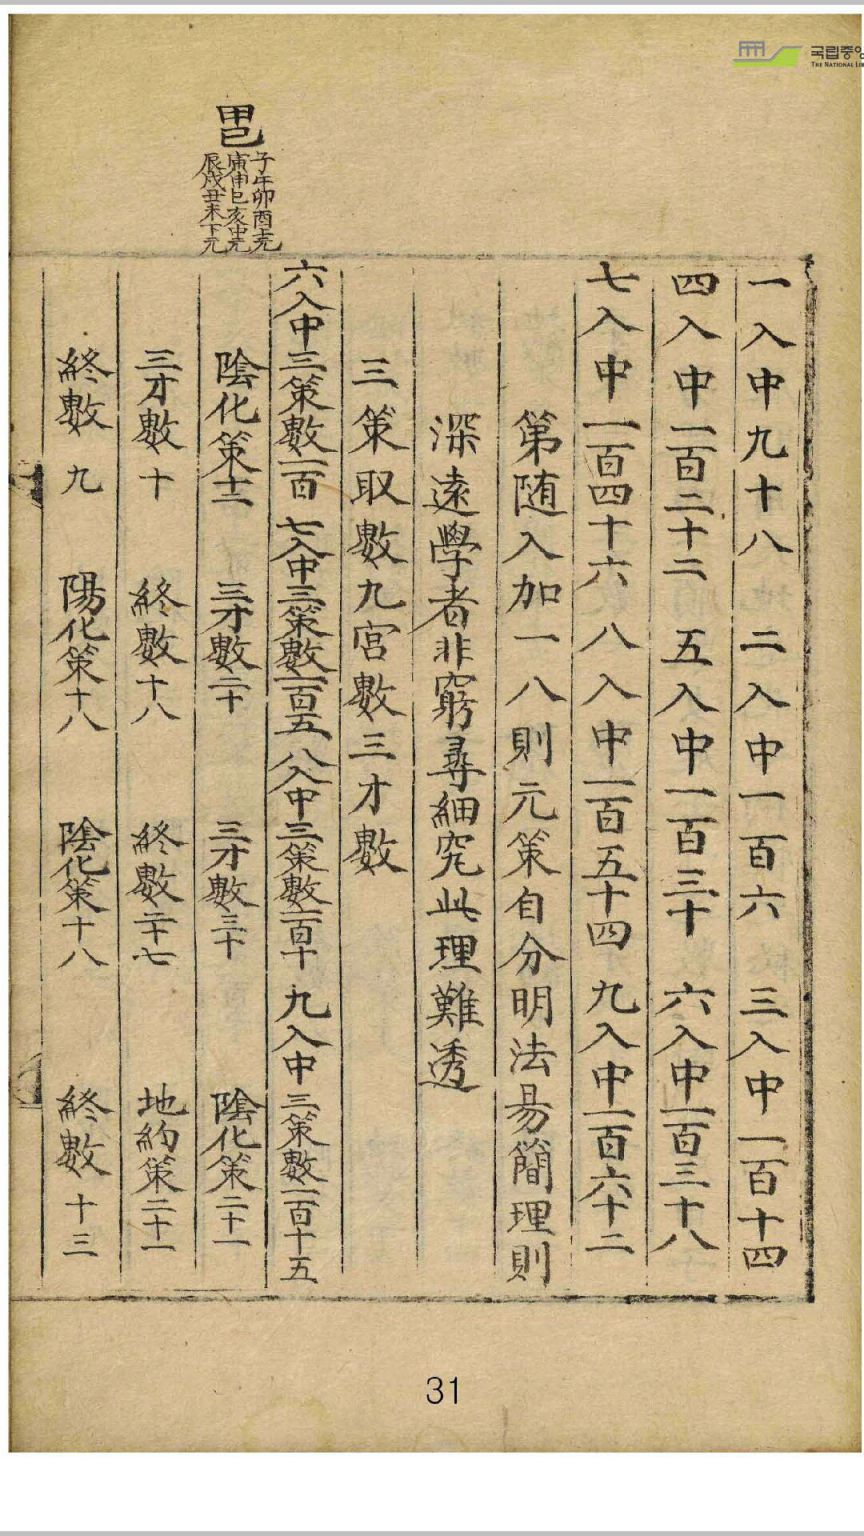 국립중앙
THE NATIONAL LIB
甲己
子午卯酉上元
寅申巳亥中元
辰戌丑未下元
一入中九十八 二入中一百六 三入中一百十四
四入中一百二十二 五入中一百三十 六入中一百三十八
七入中一百四十六 八入中一百五十四 九入中一百六十二
第随入加一八則元策自分明法易簡理則
深遠學者非窮尋細究此理難透
三策取數九宮數三才數
六入中三策數一百 七入中三策數一百五 八入中三策數一百十 九入中三策數一百十五
陰化策十二 三才數二十 三才數三十 陰化策二十一
三才數十 終數十八 終數二十七 地約策二十一
終數九 陽化策十八 陰化策十八 終數十三
31